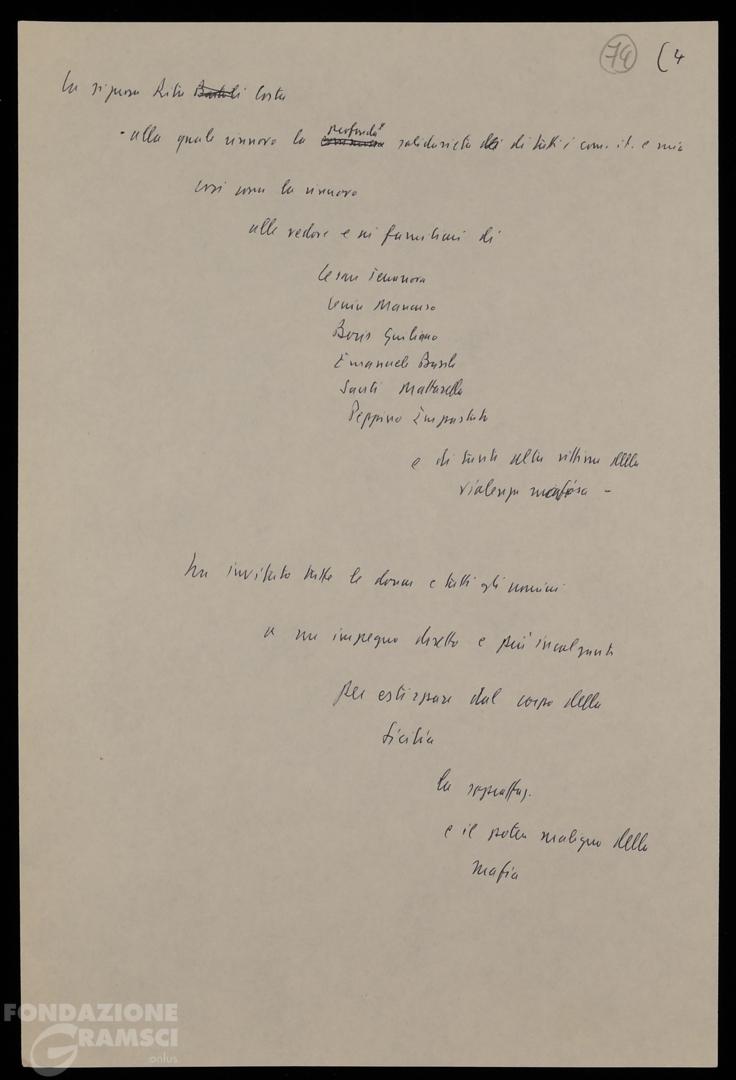 74 (4
La signora Rita Bartoli Costa
- alla quale rinnovo la profonda solidarietà di tutti i com. it. e mia
così come la rinnovo
alle vedove e ai familiari di
Cesare Terranova
Lenin Mancuso
Boris Giuliano
Emanuele Basile
Santi Mattarella
Peppino Impastato
e di tante altre vittime della
violenza mafiosa -
ha invitato tutte le donne e tutti gli uomini
a un impegno diretto e più incalzante
per estirpare dal corpo della
Sicilia
la sopraffaz.
e il potere maligno della
mafia
FONDAZIONE
GRAMSCI
onlus